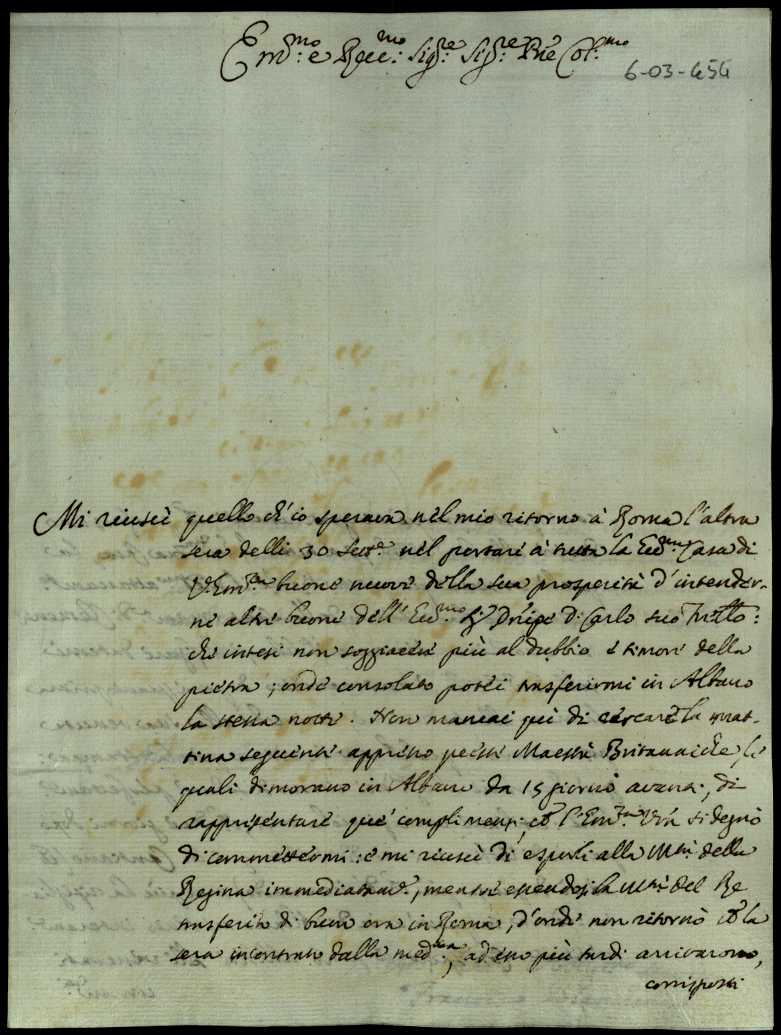 Em.mo e Rev.mo Sig.re Sig.re Pñe Col.mo
6-03-454
Mi riuscì quello ch'io sperava nel mio ritorno à Roma l'altra
sera delli 30 Sett.e nel portare à tutta la Ecc.ma Casa di
V. Em.za buone nuove della sua prosperità d'intender-
ne altre buone dell'Ecc.mo Sr Dñ D. Carlo suo frẽllo:
che intesi non soggiacere più al dubbio e timore della
pietra; onde consolato potei trasferirmi in Albano
la stessa notte. Non mancai poi di cercare la mat-
tina seguente appresso queste Maestà Britanniche, le
quali dimorano in Albano da 15 giorni avanti, di
rappresentare que' complimenti, ch l'Em.za Vrã si degnò
di commettermi: e mi riuscì di esporli alla M.tà della
Regina immediatam.e, mentre essendosi la M.tà del Re
trasferita di buon ora in Roma, d'onde non ritornò ch la
sera incontrato dalla med.ma, ad esso più tardi arrivarono,
corrisposti